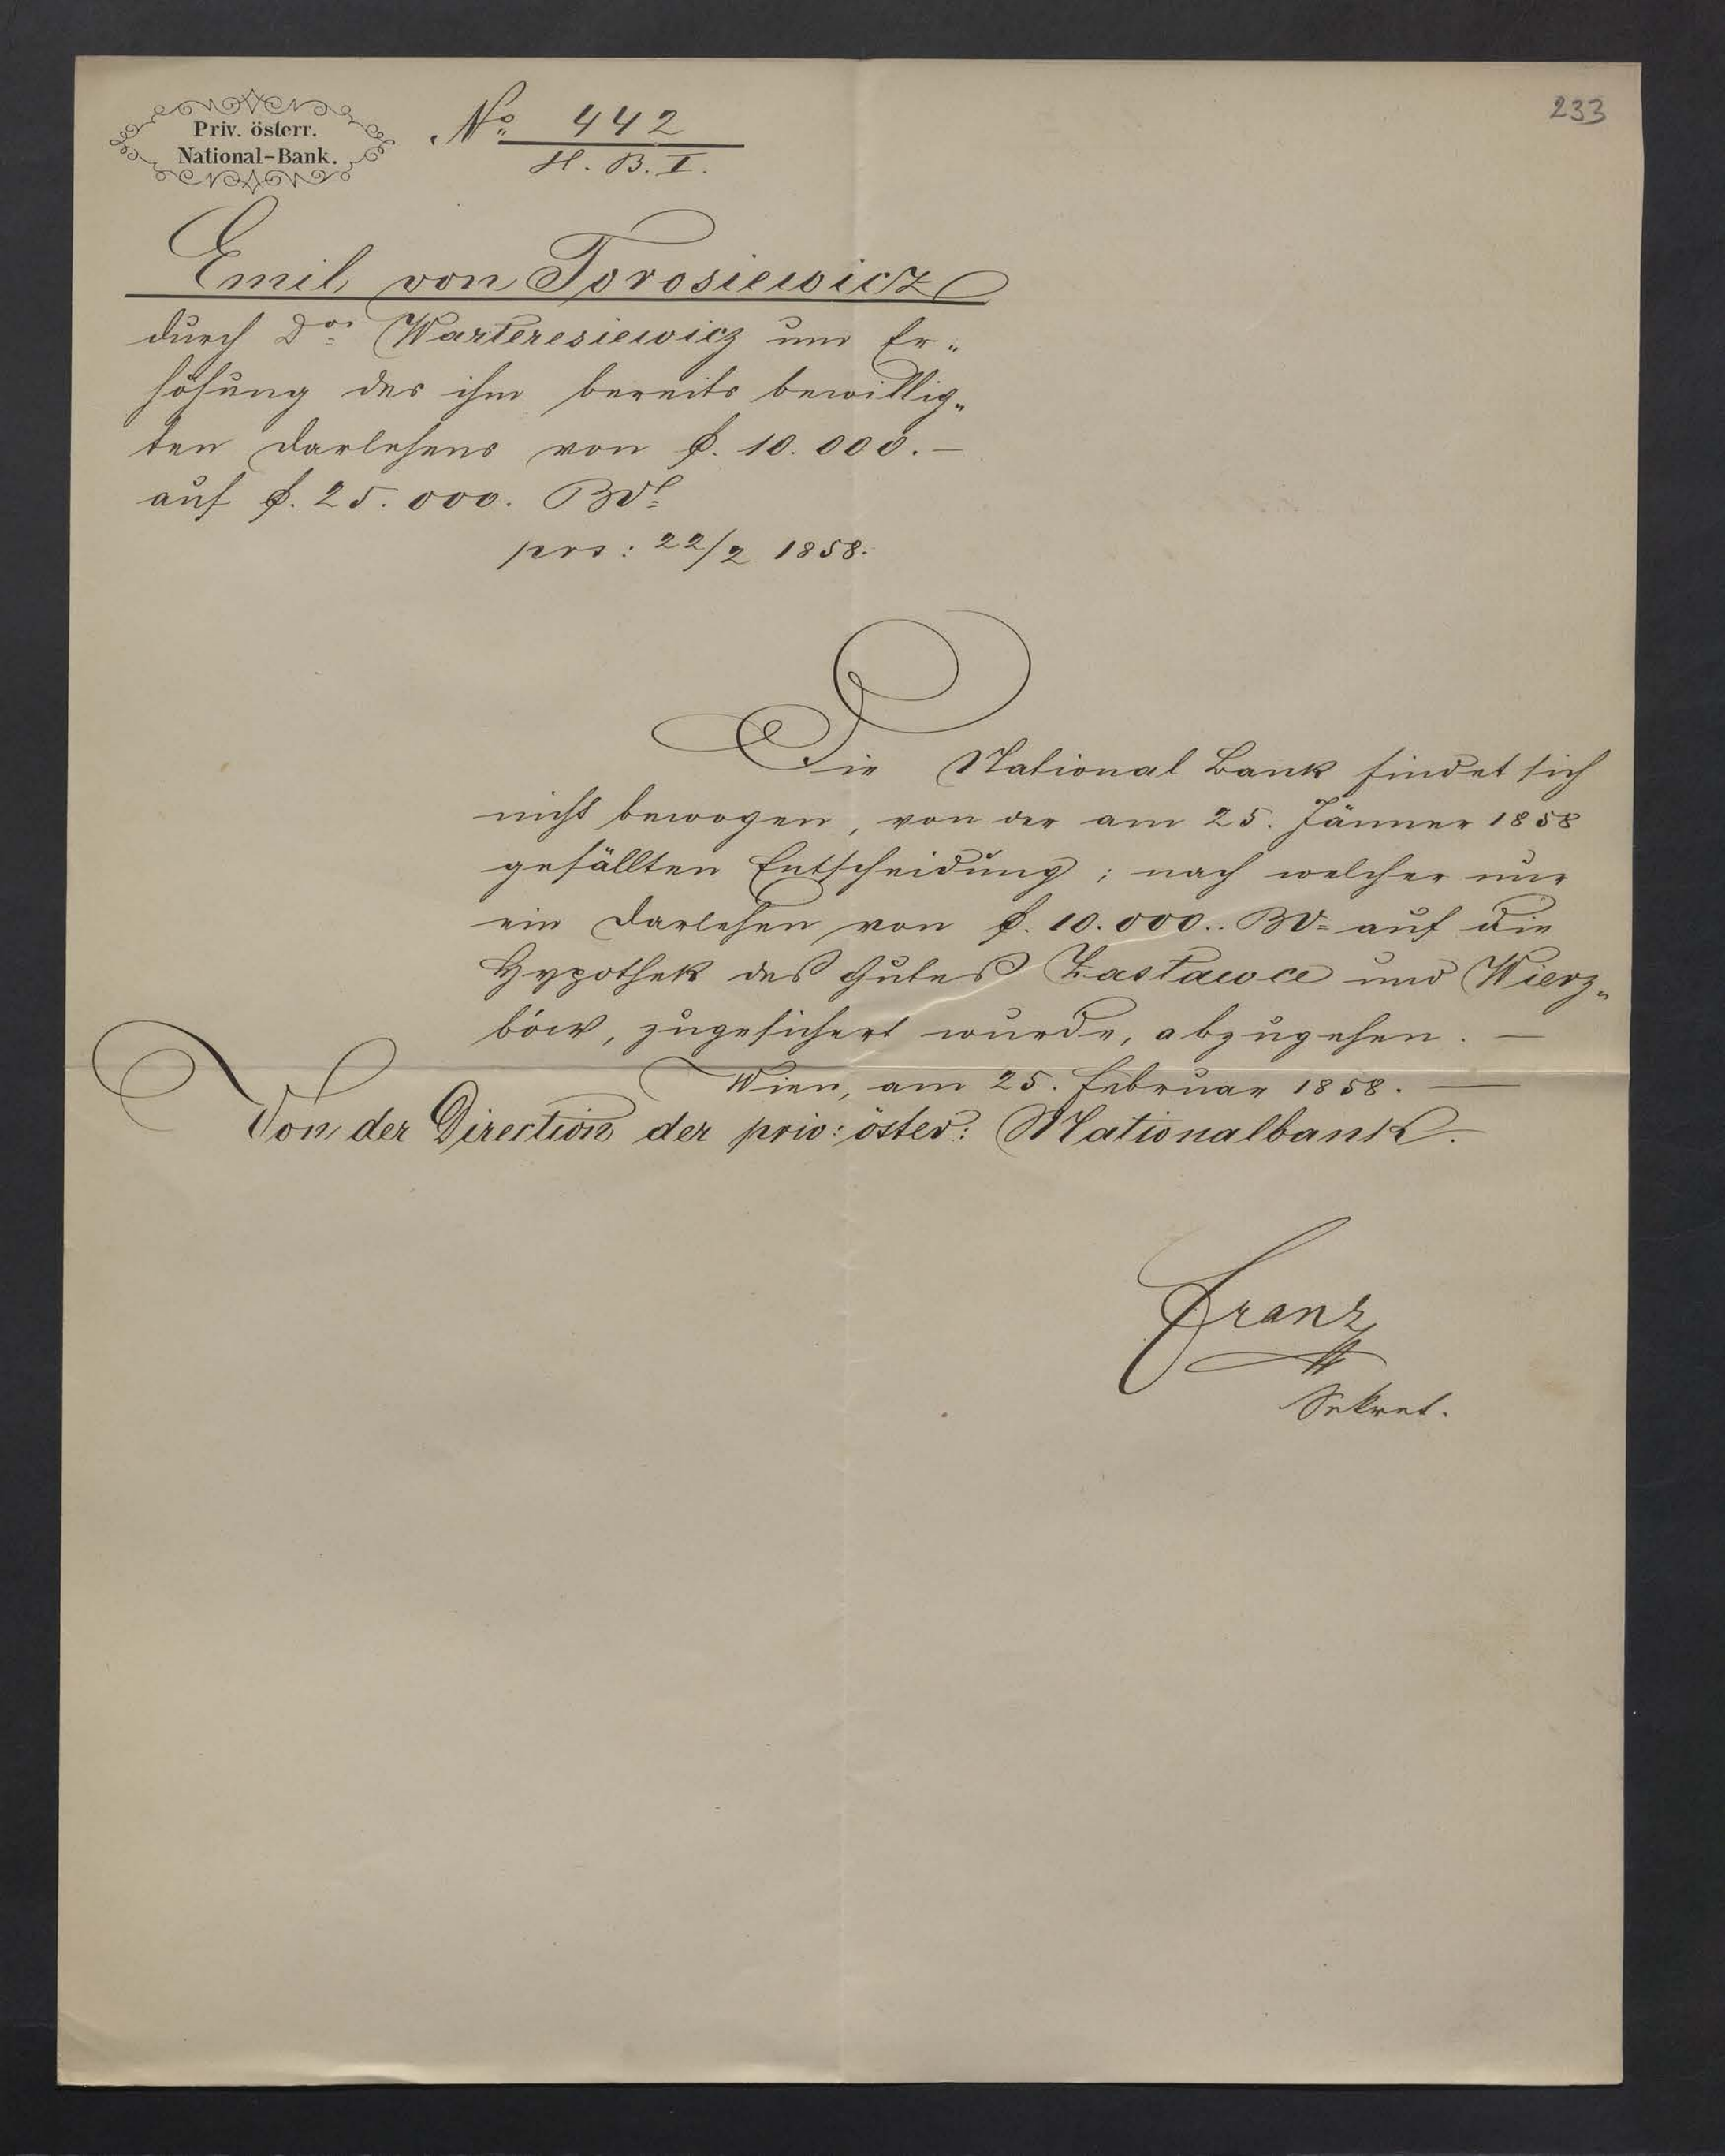 Priv. österr.
National-Bank.
No 442
H. B. I.
233
Emil von Torosiewicz
durch Dor Warteresiewicz um Er„
höhung des ihm bereits bewillig„
ten Darlehens von f. 10.000.—
auf f. 25.000. BVl
prs: 22/2 1858.
Die National Bank findet sich
nicht bewogen, von der am 25. Jänner 1858
gefällten Entscheidung; nach welcher nur
ein Darlehen von f. 10.000.. BV= auf die
Hypothek des Gutes Zastawce und Wierz„
bów, zugesichert wurde, abzugehen. —
Wien, am 25. Februar 1858. —
Von der Direction der priv: österr: Nationalbank.
Franz
Sekret.